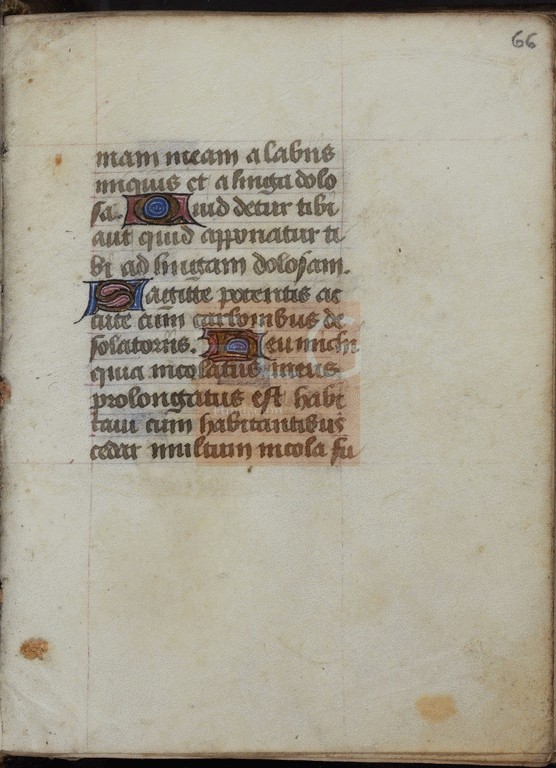 66
mam meam a labiis
iniquis et a lingua dolo
sa. Quid detur tibi
aut quid apponatur ti
bi ad linguam dolosam.
Sagitte potentis ac
cute cum carbonibus de
solatoriis. Heu michi
quia incolatus meus
prolongatus est habi
tavi cum habitantibus
cedar multum incola fu